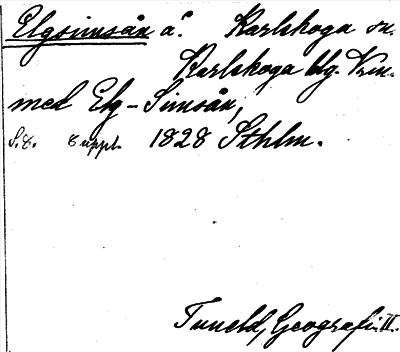 Elgsimsån å. Karlskoga sn.
Karlskoga bg. Vrm.
med Elg-Simsån,
S. 8. 8 uppl. 1828 Sthlm.
Tuneld, Geografi. II.